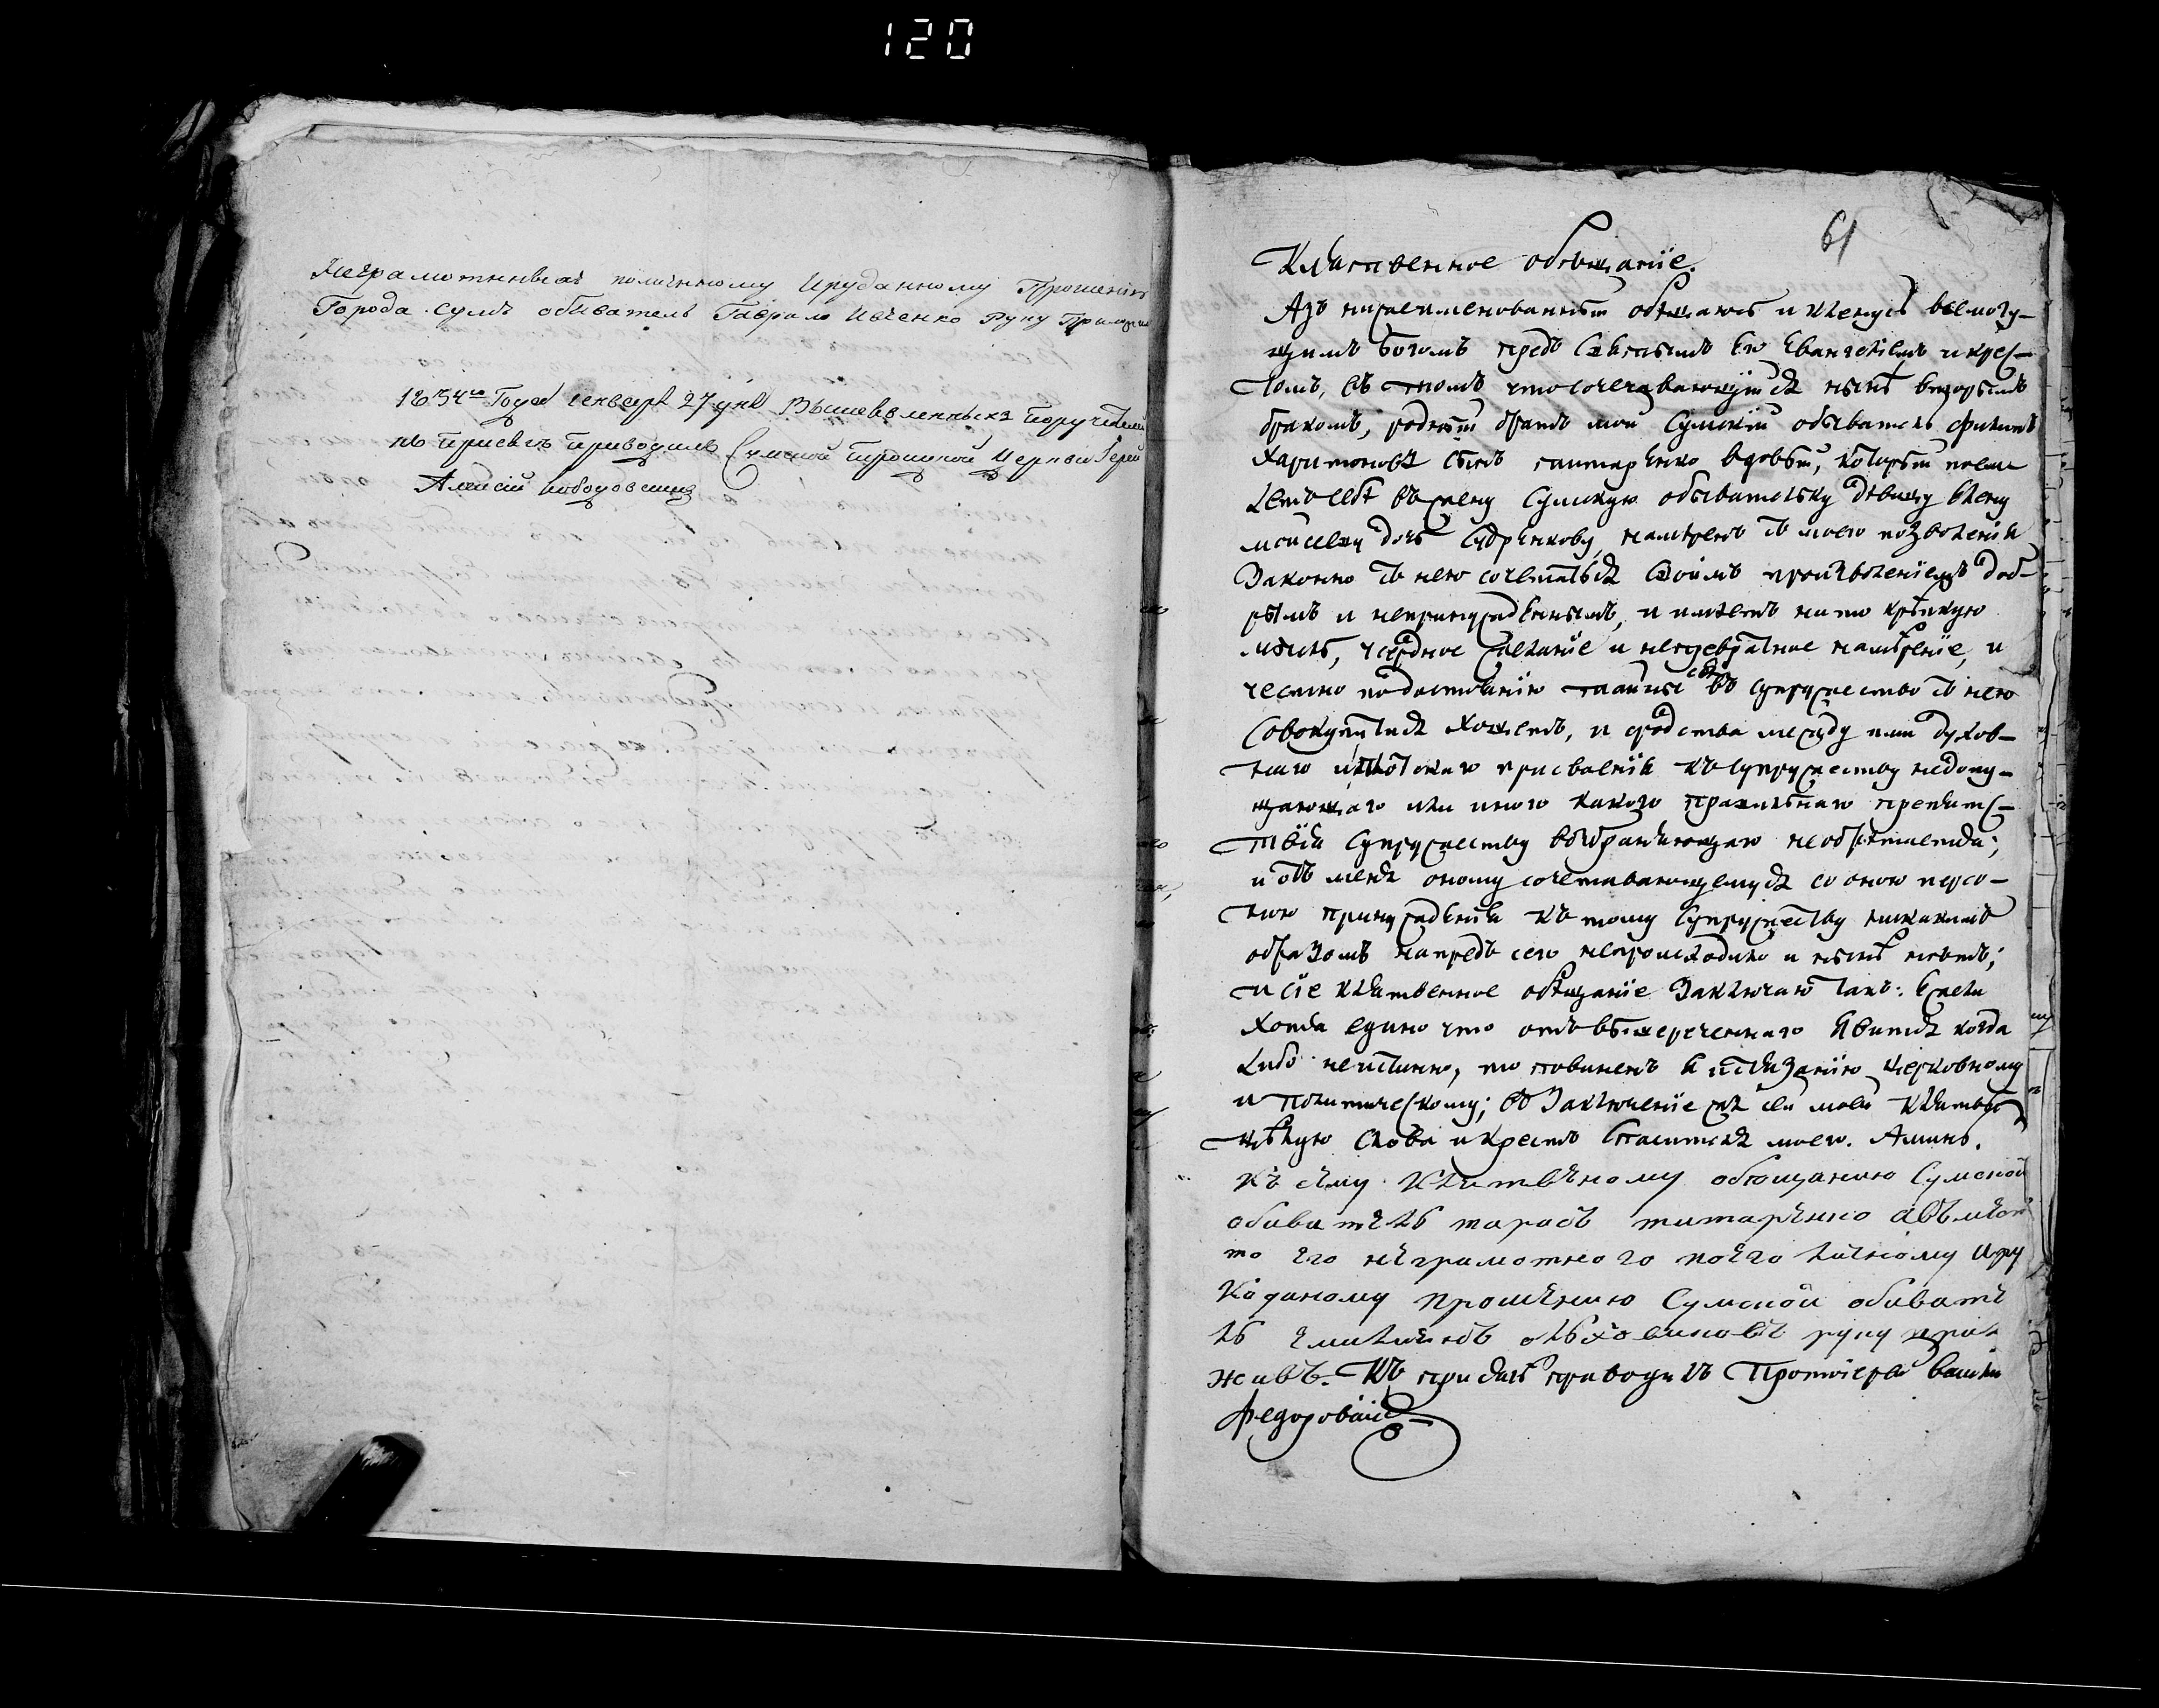 120
неграмотныхъ по личному и руданному Прошенію
Города Сумъ обиватель Гаврило Ивченко руку Приложи
Года генваря 27 дня Поручители
къ присягѣ приводилъ Сумской Троицкой церкви Іерей
Алексій
61
Клятвенное обѣщаніе.
Азъ нижеименованный обѣщаюсь и кленусь всемогу-
щимъ Богомъ предъ Святымъ Его Евангеліемъ и крес-
томъ, въ томъ что сочетавающійся нынѣ вторымъ
бракомъ, родный братъ мой Сумскій обыватель Филипъ
Харитоновъ сынъ Титаренко вдовый, который поем-
летъ себѣ въ жену Сумскую обывательку дѣвицу Елену
Моисееву дочь намѣренъ съ моего позволенія
Законно съ нею сочетаться своимъ произволеніемъ доб-
рымъ и непринужденнымъ, и имѣетъ на то крѣпкую
мысль, усердное желаніе и непревратное намѣреніе, и
честно по достоянію тайны сея въ супружество съ нею
совокупиться хощетъ, и сродства между ими духов-
наго и плотскаго присвоенія къ супружеству недопу-
щающаго или иного какого правильнаго препятс-
твія супружеству возбраняющаго необрѣтается;
и отъ мене оному сочетавающемуся со оною персо-
ною принужденія къ тому супружеству никакимъ
образомъ напредъ сего непроисходило и нынѣ нѣтъ;
и сіе клятвенное обѣщаніе заключаю такъ: ежели
хотя едино что отъ вышереченнаго явится когда
либо неистинно, то повиненъ я истязанію церковному
и политическому; въ заключеніе же сея моея клятвы
цѣлую слова и крестъ Спасителя моего. Аминь.
Къ сему клитвеному обѣщанию Сумской
обиватель тарасъ титаренко авъмѣсто
то его неграмотного поего личному ируру
коданому прошению Сумской обивате
ль емилианъ руку прило
живъ. Къ присягѣ приводилъ Протоіерей Василій
Федоровскій